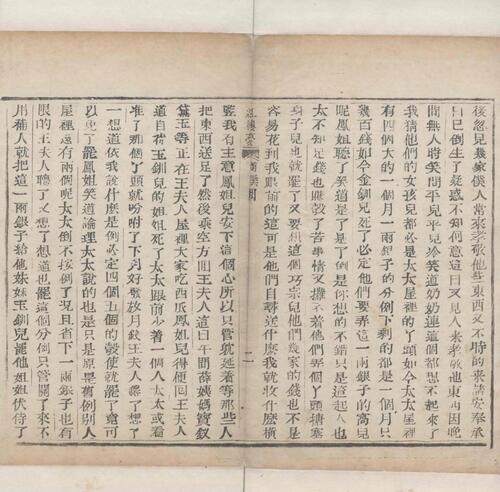 後忽見幾家僕人常來孝敬他些東西又不時的來請安奉承
自己倒生了疑惑不知何意這日又見人來孝敬他東西因晚
間無人時笑問平兒平兒冷笑道奶奶連這個都想不起來了
我猜他們的女孩兒都必是太太屋裡的丫頭如今太太屋裡
有四個大的一個月一兩銀子的分例下剩的都是一個月只
幾百錢如今金釧兒死了必定他們要弄這一兩銀子的窩兒
呢鳳姐聽了笑道是了是了倒是你想的不錯只是這起人也
太不知足錢也賺彀了苦事情又攤不着他們弄個丫頭搪塞
身子兒也就罷了又要想這個巧宗兒他們幾家的錢也不是
容易花到我跟前的這可是他們自尋送什麼我就收什麼橫
紅樓夢
豎我有主意鳳姐兒安下這個心所以只管躭延着等那些人
把東西送足了然後乘空方回王夫人這日午間薛姨媽寶釵
黛玉等正在王夫人屋裡大家吃西瓜鳳姐兒得便回王夫人
道自從玉釧兒的姐姐死了太太跟前少着一個人太太或看
準了那個丫頭就吩咐了下月好發放月錢王夫人聽了想了
一想道依我說什麼是例必定四個五個的彀使就罷了竟可
以免了罷鳳姐笑道論理太太說的也是只是原是舊例別人
屋裡還有兩個呢太太倒不按例了況且省下一兩銀子也有
限的王夫人聽了又想了想道也罷這個分例只管關了來不
用補人就把這一兩銀子給他妹妹玉釧兒罷他姐姐伏侍了